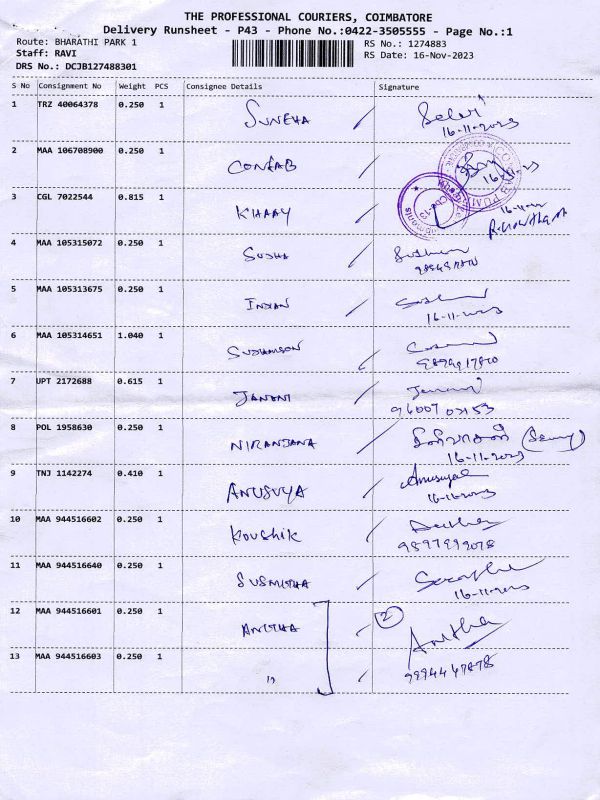 THE PROFESSIONAL COURIERS, COIMBATORE
Delivery Runsheet - P43 - Phone No.:0422-3505555 - Page No.:1
Route: BHARATHI PARK 1 RS No.: 1274883
Staff: RAVI RS Date: 16-Nov-2023
DRS No.: DCJB127488301
S No Consignment No Weight PCS Consignee Details Signature
1 TRZ 40064378 0.250 1 SUNEHA
16-11-2023
2 MAA 106708900 0.250 1 CONFAB
3 CGL 7022544 0.815 1 KHAAY
4 MAA 105315072 0.250 1 SUDHA
5 MAA 105313675 0.250 1 INDIAN
16-11-2023
6 MAA 105314651 1.040 1
7 UPT 2172688 0.615 1 JANANI
8 POL 1958630 0.250 1 NIRANJANA
16-11-2023
9 TNJ 1142274 0.410 1 ANUSUYA Anusuya
10 MAA 944516602 0.250 1 KOUSHIK
11 MAA 944516640 0.250 1 SUSMITHA
16-11-2023
12 MAA 944516601 0.250 1 ANITHA 2 Anitha
13 MAA 944516603 0.250 1 "